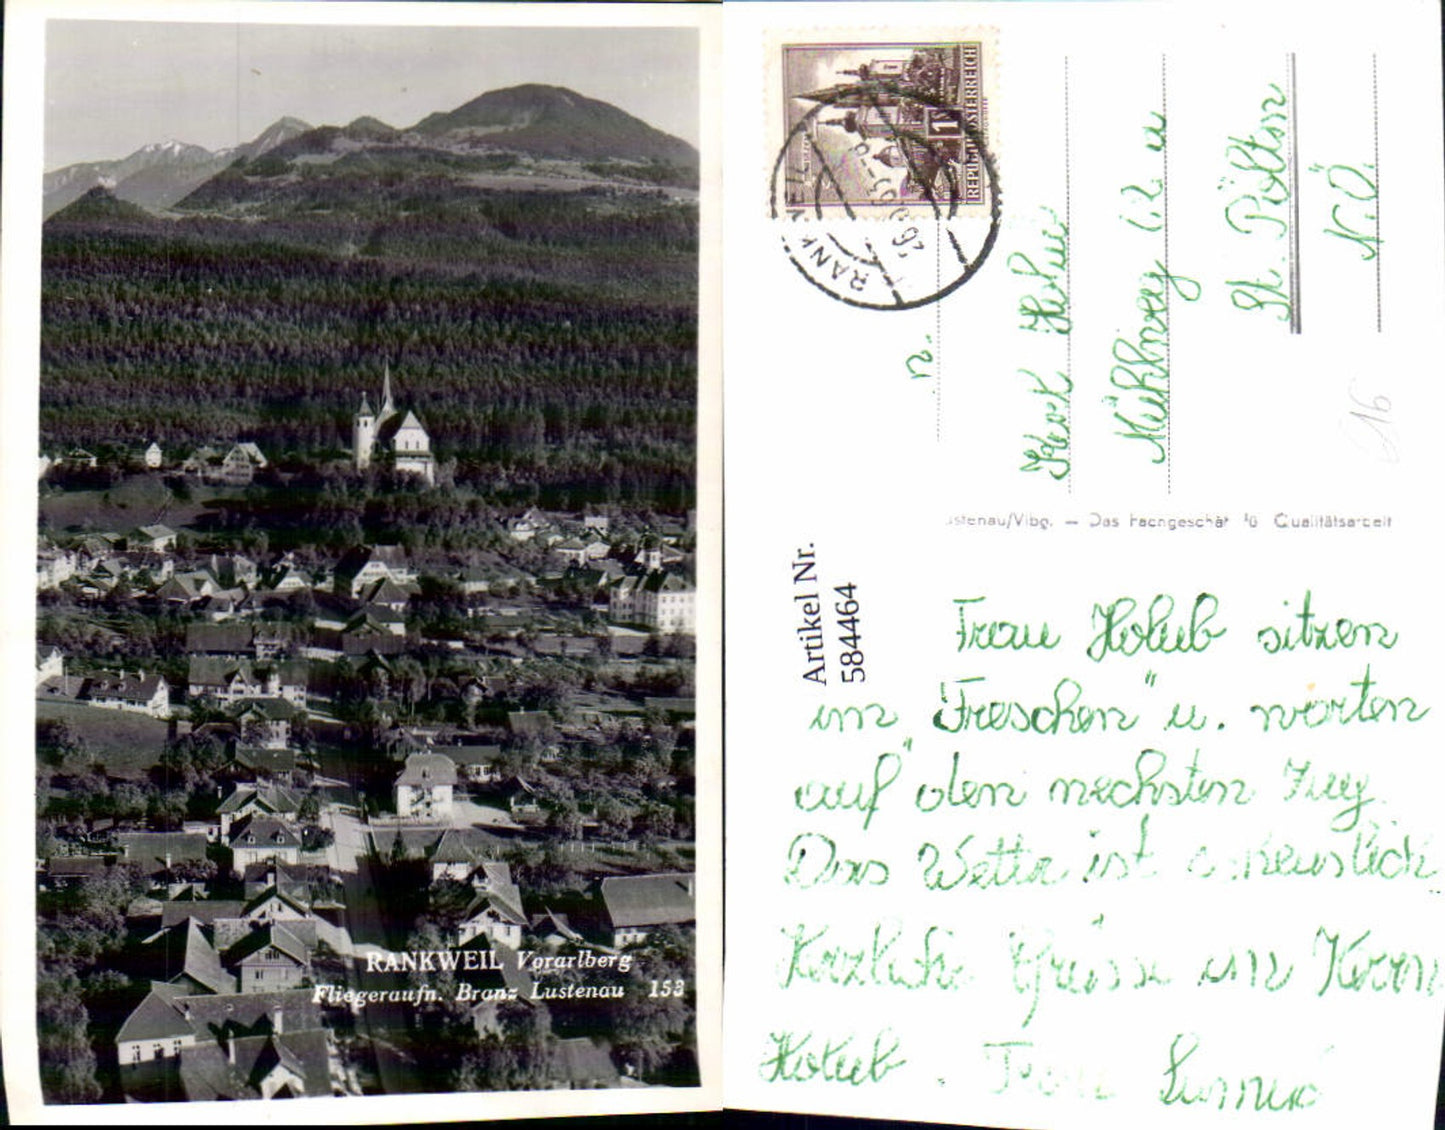 RANKWEIL Vorarlberg
Fliegeraufn. Branz Lustenau 153
REPUBLIK ÖSTERREICH
1
RANKWEIL
n.
Karl Holub
Mühlweg
St. Pölten
N.Ö.
16
ustenau/Vlbg. — Das Fachgeschäft für Qualitätsarbeit
Artikel Nr.
584464
Frau Holub sitzen
im "Freschen" u. warten
auf den nechsten Zug.
Das Wetter ist
Herzliche Grüsse an Herrn
Holub. Frau